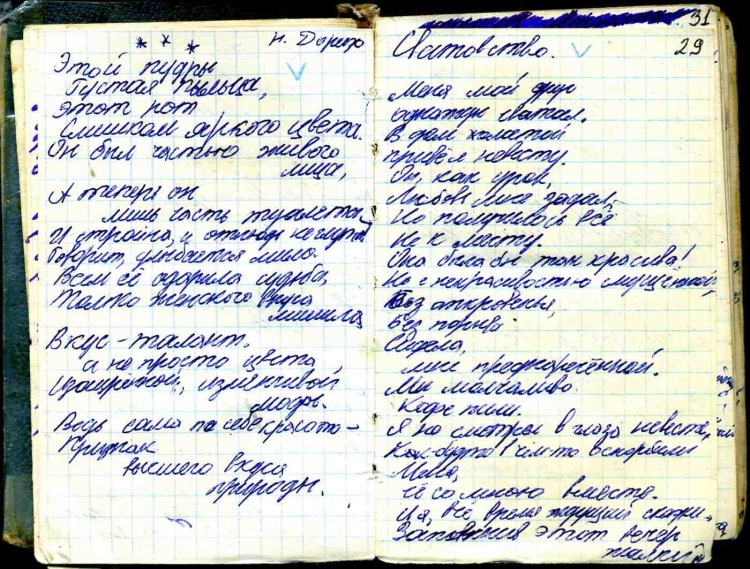 * * *
Н. Доризо
Этой пудры
Густая пыльца,
Этот рот
Слишком яркого цвета.
Он был частью живого
лица,
А теперь он
лишь часть туалета.
И стройна, и отнюдь не глупа
Говорит, улыбается мило.
Всем её одарила судьба,
Только женского вкуса
лишила
Вкус - талант.
а не просто цвета
изощрённой, изменчивой
моды.
Ведь сама по себе красота -
Признак
высшего вкуса
природы.
31
Сватовство.
29
Меня мой друг
однажды сватал.
В дом холостой
привёл невесту.
Он, как урок,
Любовь мне задал,
Но получилось всё
Не к месту.
Она была б так красива!
Но с некрасивостью смущенной,
Без откровенья,
Без порыва
Сидела,
мне предназначенной.
Мы молчаливо
Кофе пили.
Я не смотрел в глаза невесте,
Как будто в чём-то оскорбили
Меня,
её со мною вместе.
И я, всё время ждущий скорби,
Запомнил этот вечер